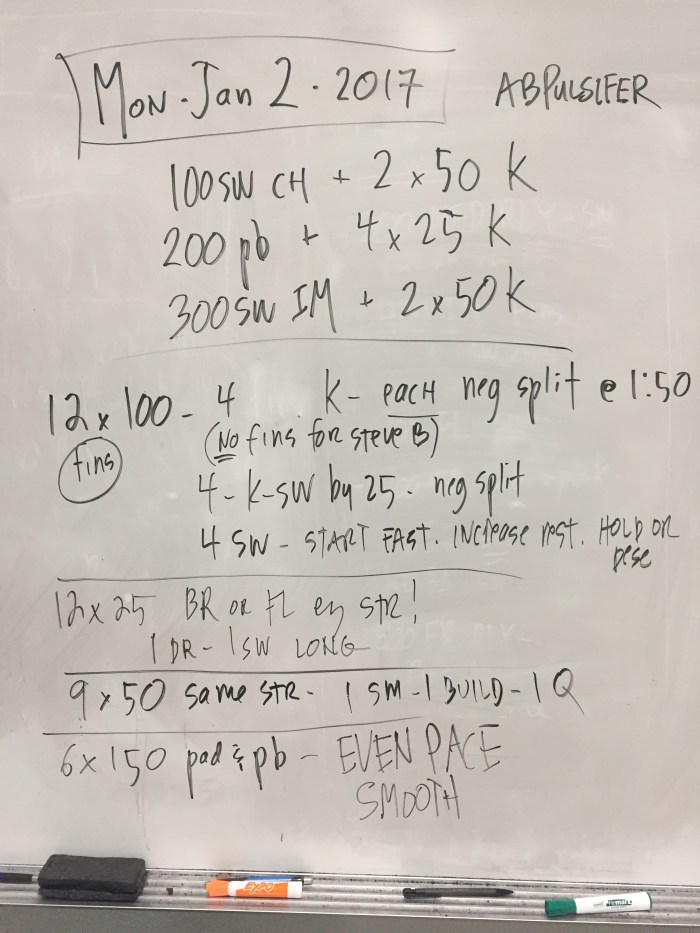 MON. Jan 2. 2017
ABPULSIFER
100 SW CH + 2 x 50 K
200 pb + 4 x 25 K
300 SW IM + 2 x 50 K
12 x 100 - 4 K - EACH neg split @ 1:50
fins
(NO fins for steve B)
4 - K-SW by 25 - neg split
4 SW - START FAST. INCrease rest. HOLD OR
DESC
12 x 25 BR or FL ez STR!
1 DR - 1 SW LONG
9 x 50 same STR - 1 SM - 1 BUILD - 1 Q
6 x 150 pad & pb - EVEN PACE
SMOOTH
EXPO